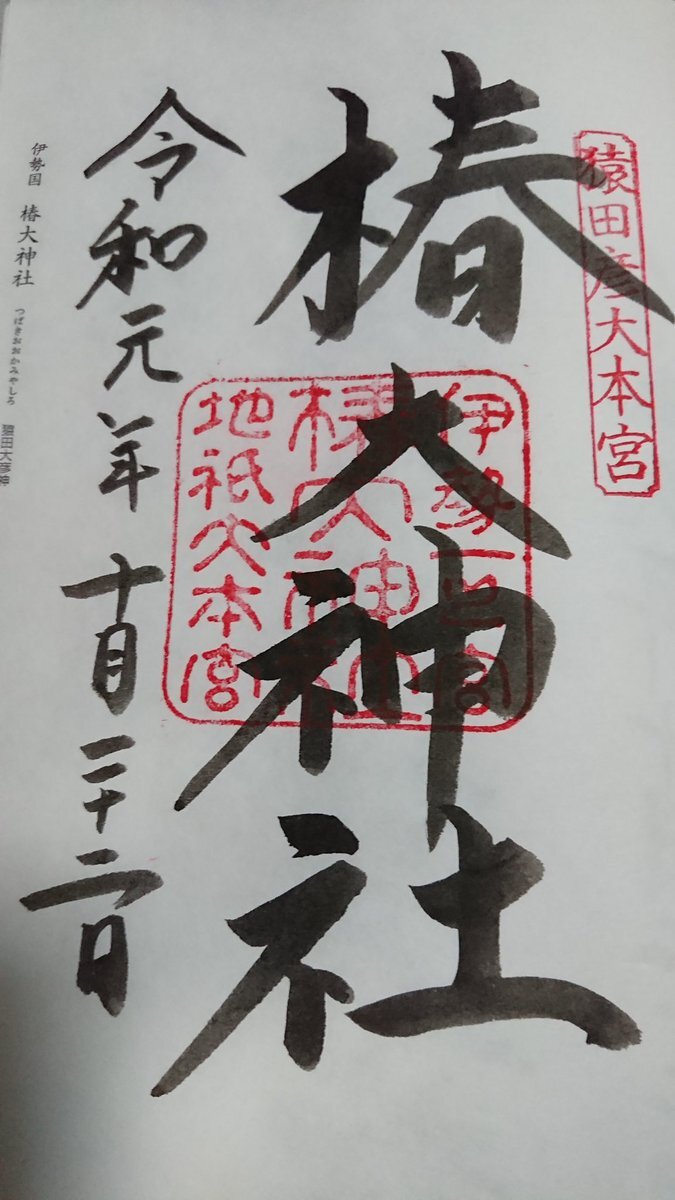 猿田彦大本宮
椿大神社
伊勢一之宮
椿大神社
地祇大本宮
令和元年十月二十二日
伊勢国 椿大神社
つばきおおかみやしろ
猿田彦大神